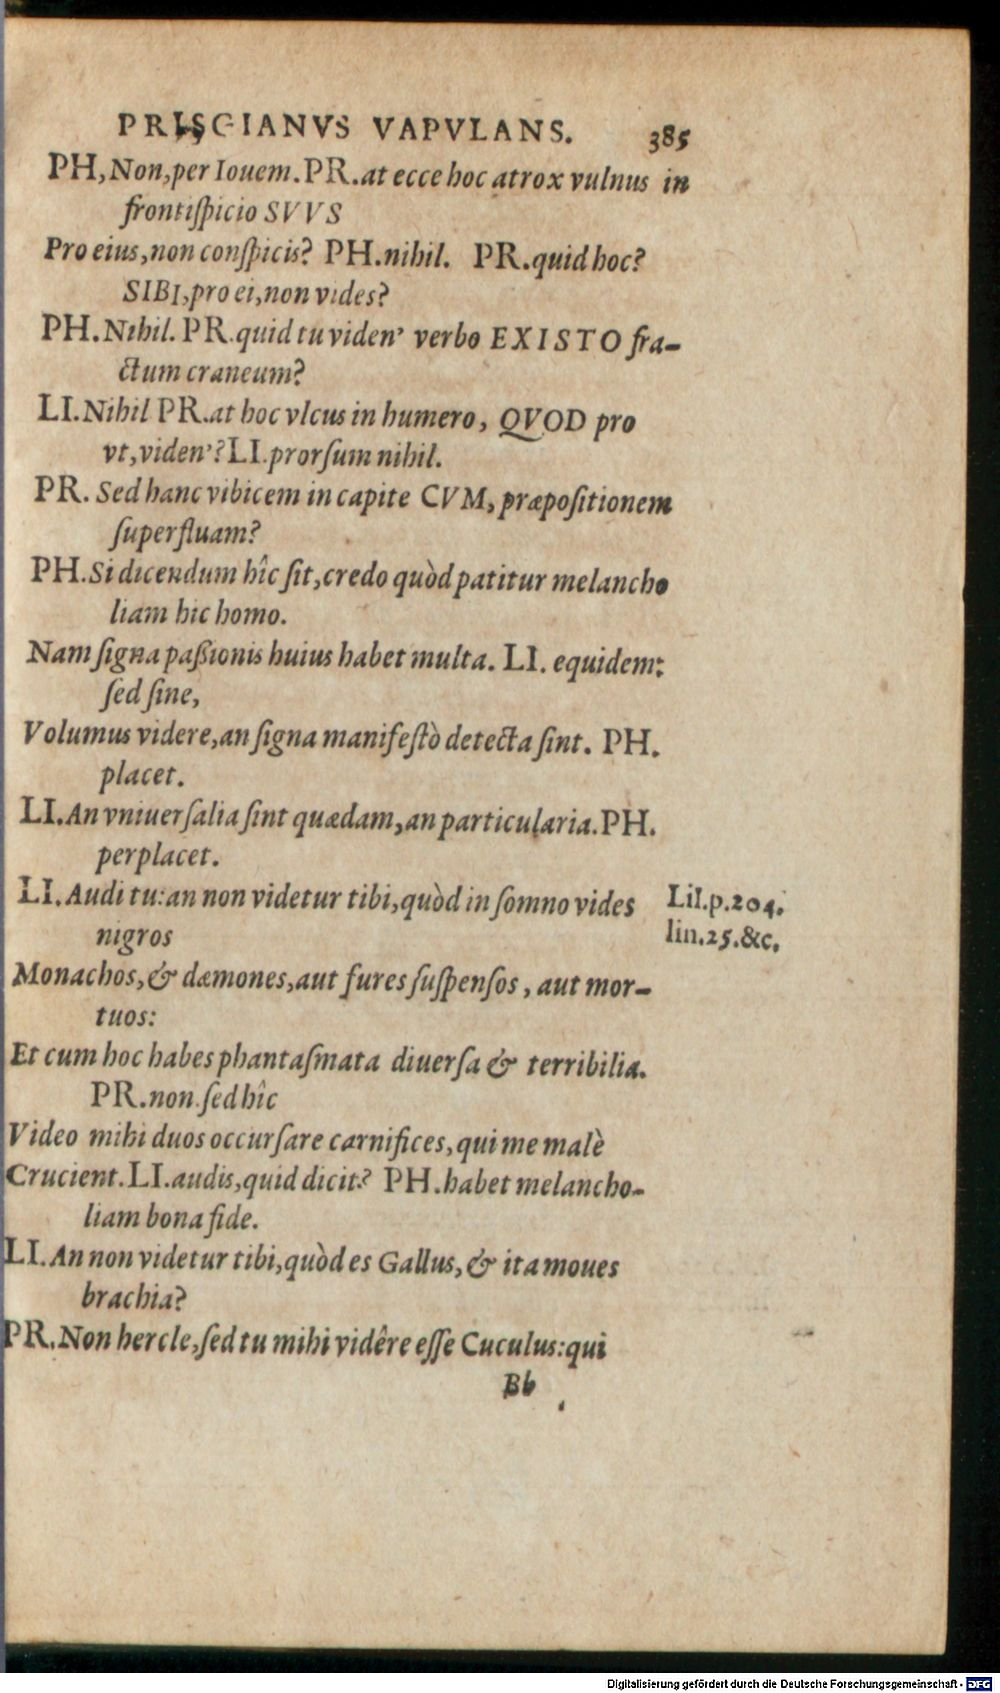 PRISCIANVS VAPVLANS. 385
PH, Non, per Iouem. PR. at ecce hoc atrox vulnus in
frontiſpicio SVVS
Pro eius, non conſpicis? PH. nihil. PR. quid hoc?
SIBI, pro ei, non vides?
PH. Nihil. PR. quid tu viden' verbo EXISTO fra-
ctum craneum?
LI. Nihil PR. at hoc vlcus in humero, QVOD pro
vt, viden'? LI. prorſum nihil.
PR. Sed hanc vibicem in capite CVM, præpoſitionem
ſuperfluam?
PH. Si dicendum hîc ſit, credo quòd patitur melancho
liam hic homo.
Nam ſigna paßionis huius habet multa. LI. equidem:
ſed ſine,
Volumus videre, an ſigna manifeſtò detecta ſint. PH.
placet.
LI. An vniuerſalia ſint quædam, an particularia. PH.
perplacet.
LI. Audi tu: an non videtur tibi, quòd in ſomno vides
nigros
Lil. p. 204.
lin. 25. &c.
Monachos, & dæmones, aut fures ſuſpenſos, aut mor-
tuos:
Et cum hoc habes phantaſmata diuerſa & terribilia.
PR. non. ſed hîc
Video mihi duos occurſare carnifices, qui me malè
Crucient. LI. audis, quid dicit? PH. habet melancho-
liam bona fide.
LI. An non videtur tibi, quòd es Gallus, & ita moues
brachia?
PR. Non hercle, ſed tu mihi vidêre eſſe Cuculus: qui
Bb
Digitalisierung gefördert durch die Deutsche Forschungsgemeinschaft - DFG